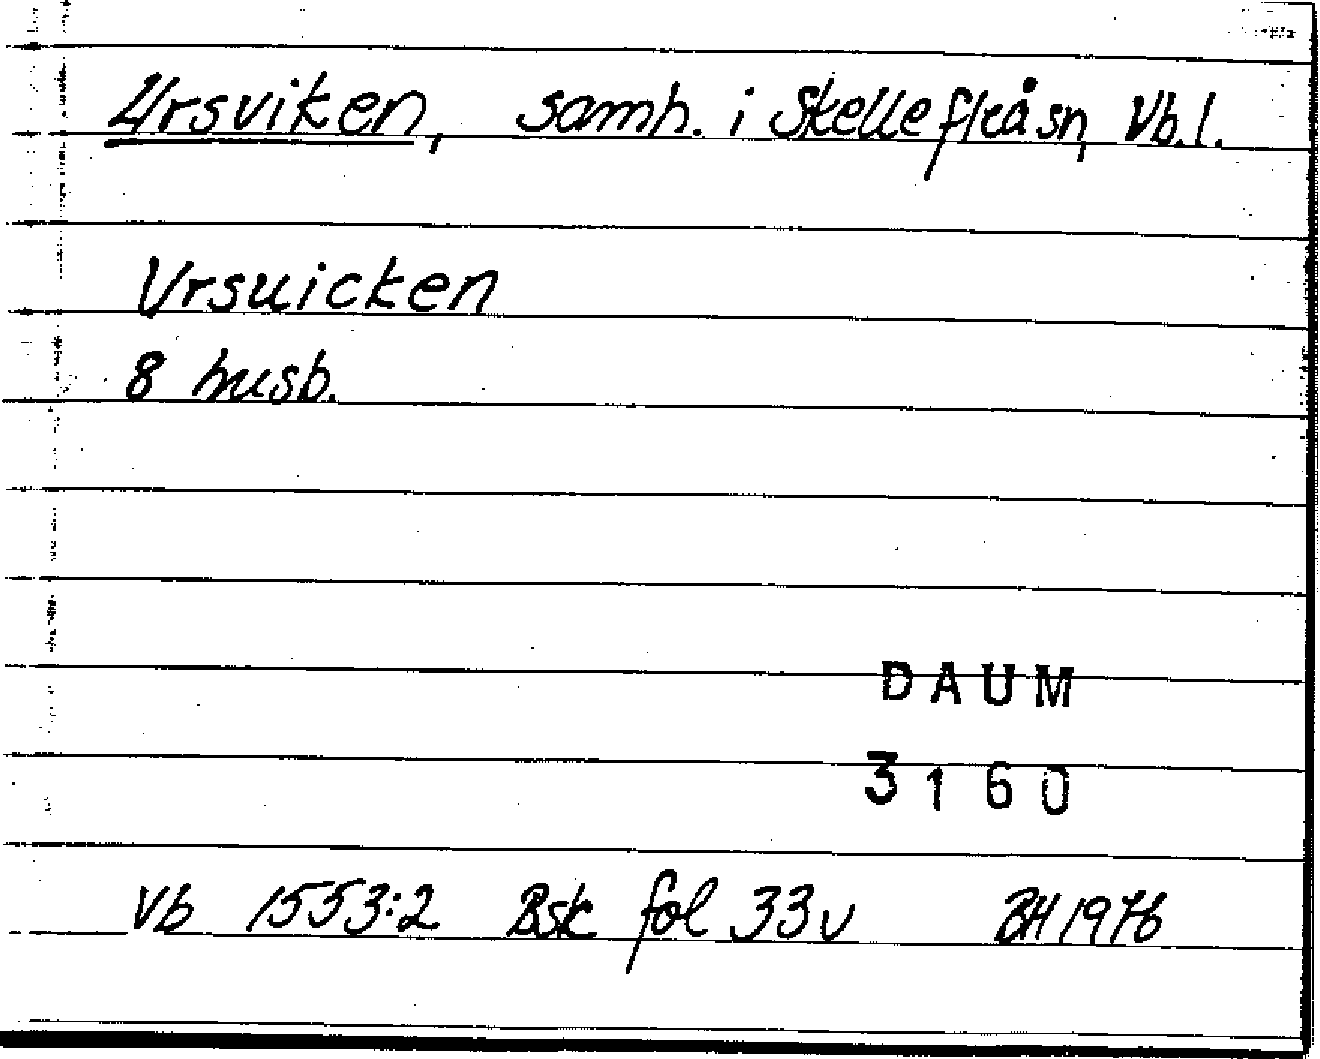 Ursviken, samh. i Skellefteå sn, Vb.l.
Vrsuicken
8 husb.
DAUM
3160
Vb 1553:2 Bsk fol 33v BH 1976